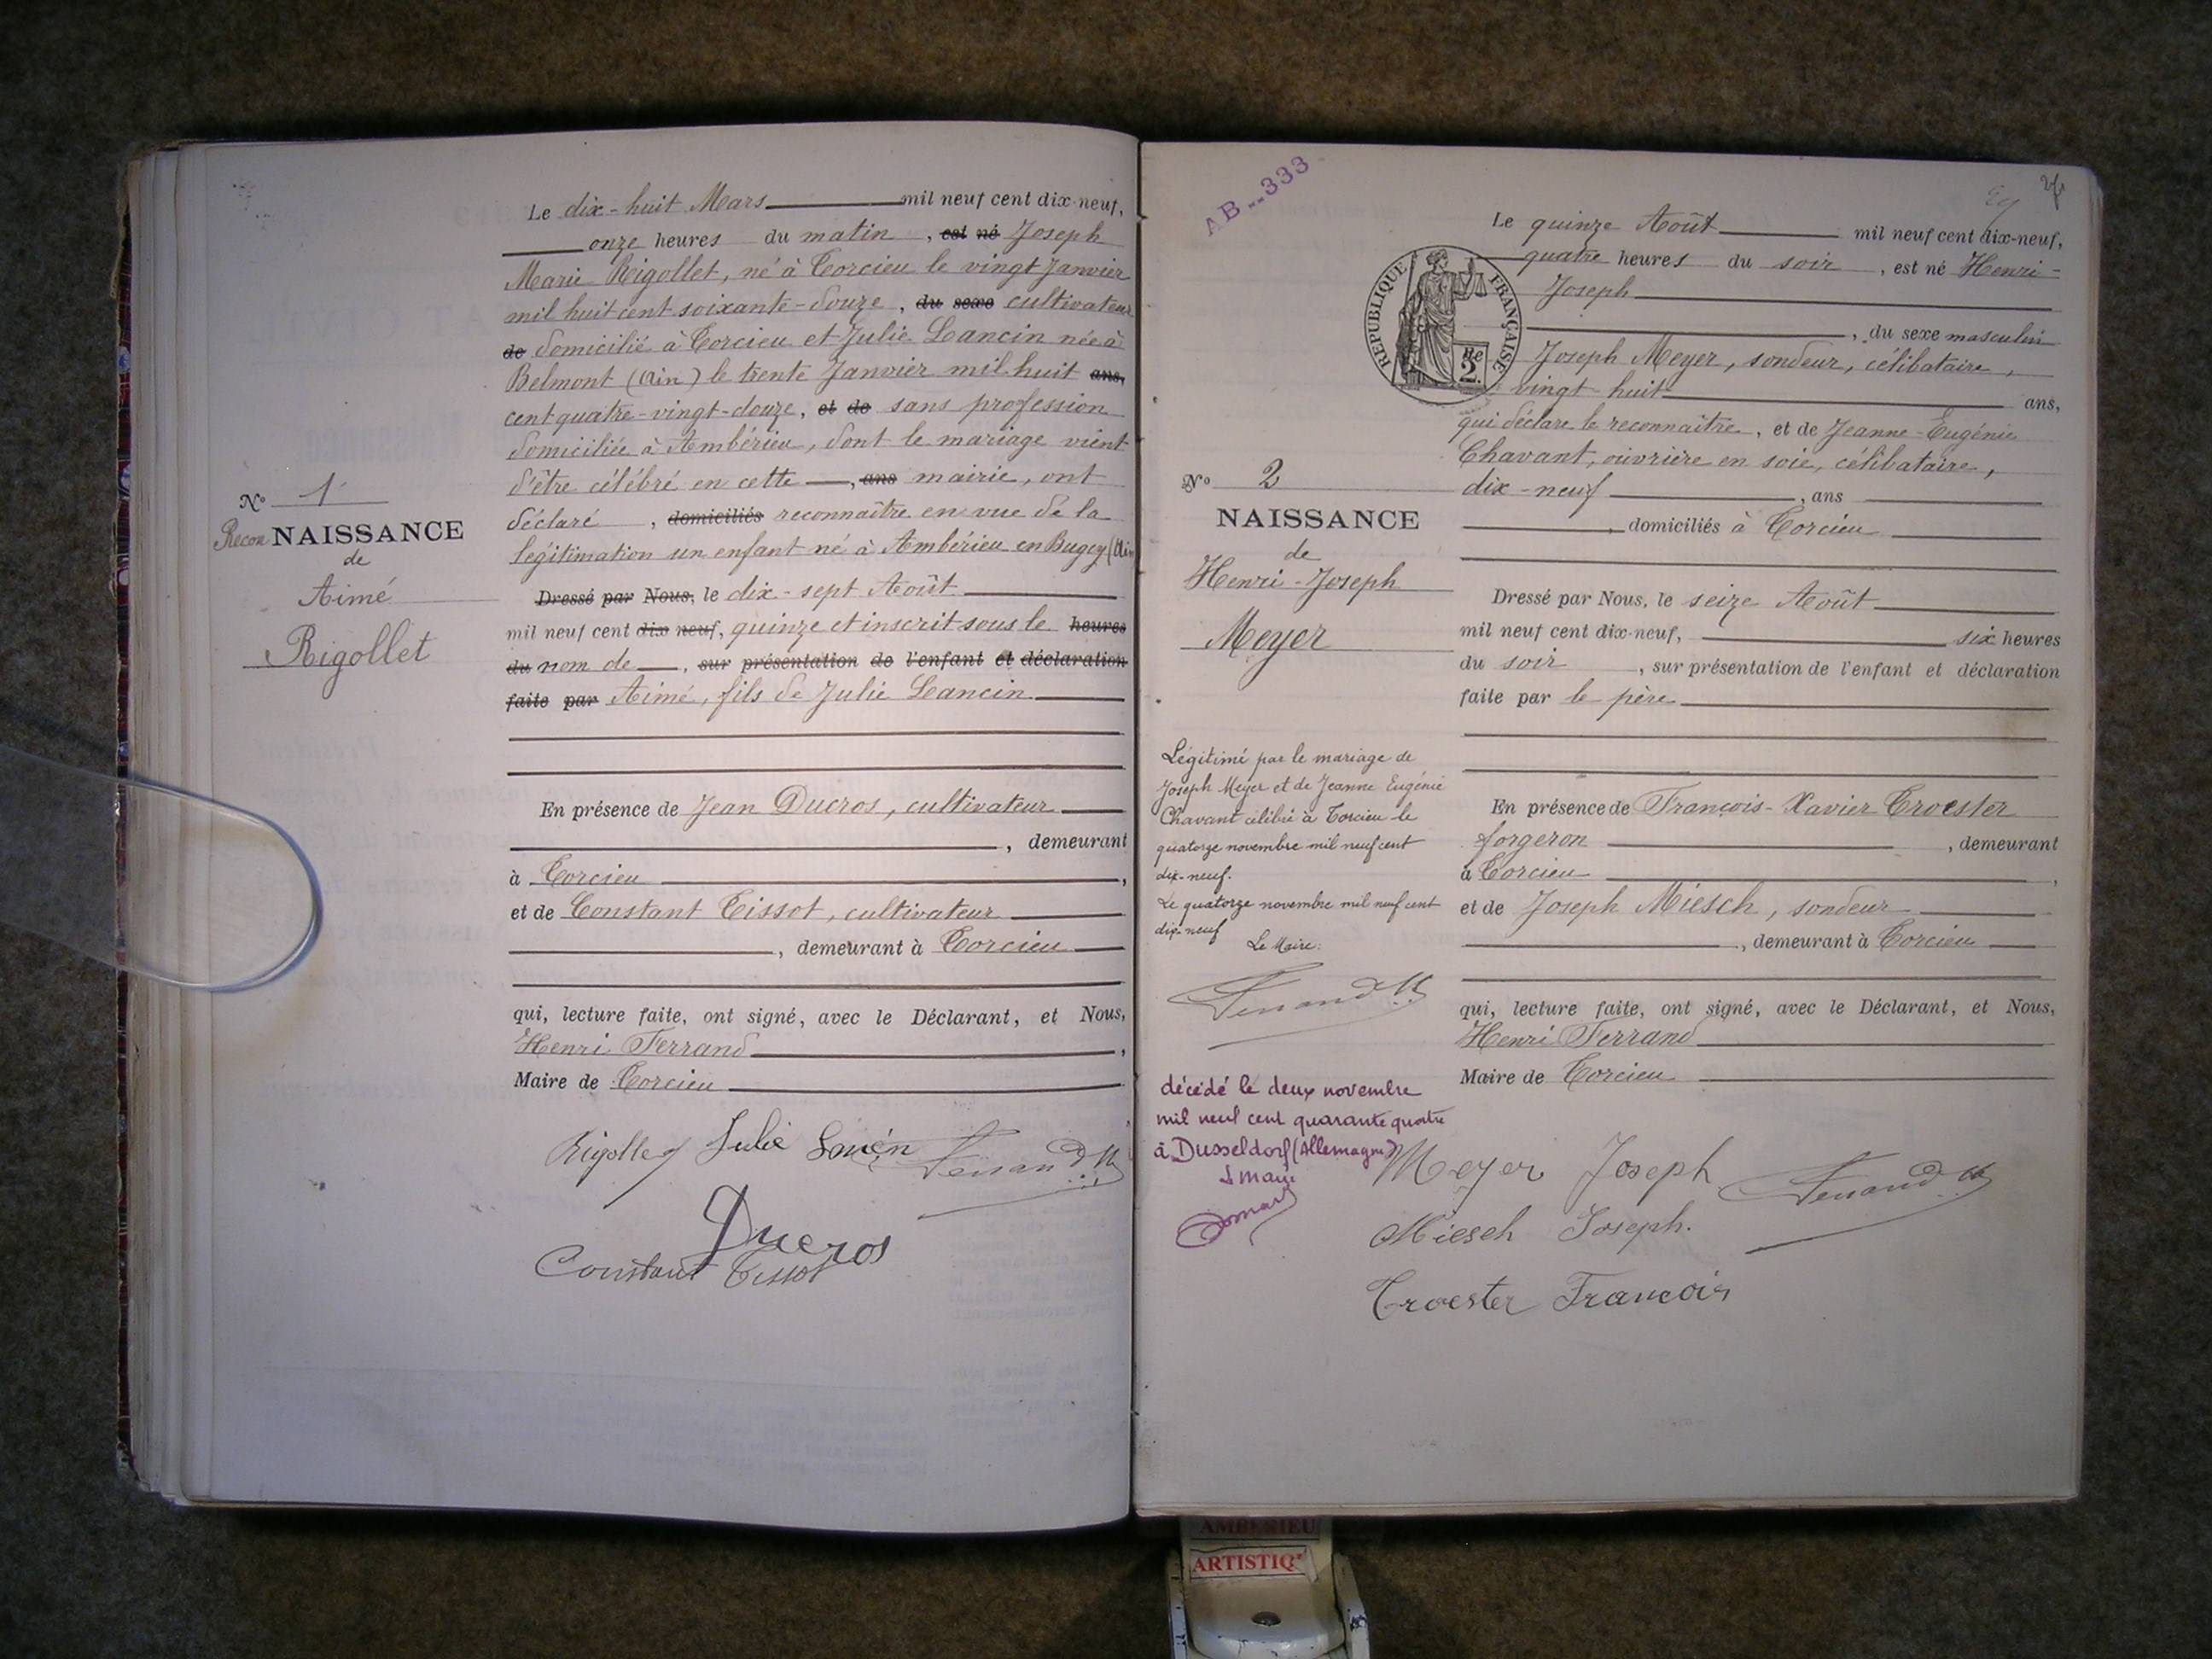 Le dix-huit Mars mil neuf cent dix-neuf,
onze heures du matin, est né Joseph
Marie Rigollet, né à Torcieu le vingt Janvier
mil huit cent soixante-douze, du sexe cultivateur
de domicilié à Torcieu et Julie Lancin née à
Belmont (Ain) le trente Janvier mil huit ans,
cent quatre-vingt-douze, et de sans profession
domiciliée à Ambérieu, dont le mariage vient
d'être célébré en cette, ans mairie, ont
déclaré, domiciliés reconnaître en vue de la
légitimation un enfant né à Ambérieu en Bugey (Ain
Nº 1
Recon NAISSANCE
de
Aimé
Rigollet
Dressé par Nous, le dix-sept Août
mil neuf cent dix neuf, quinze et inscrit sous le heures
du nom de, sur présentation de l'enfant et déclaration
faite par Aimé, fils de Julie Lancin
En présence de Jean Ducros, cultivateur
, demeurant
à Torcieu,
et de Constant Tissot, cultivateur
, demeurant à Torcieu
qui, lecture faite, ont signé, avec le Déclarant, et Nous,
Henri Ferrand,
Maire de Torcieu
Rigollet Julie Ferrand H
Ducros
Constant Tissot
AB 333
RÉPUBLIQUE FRANÇAISE
2
Le quinze Août mil neuf cent dix-neuf,
quatre heures du soir, est né Henri-
Joseph
, du sexe masculin
Joseph Meyer, sondeur, célibataire,
vingt-huit ans,
qui déclare le reconnaitre, et de Jeanne-Eugénie
Chavant, ouvrière en soie, célibataire,
dix-neuf, ans
, domiciliés à Torcieu
Nº 2
NAISSANCE
de
Henri-Joseph
Meyer
Dressé par Nous, le seize Août
mil neuf cent dix-neuf, six heures
du soir, sur présentation de l'enfant et déclaration
faite par le père
Légitimé par le mariage de
Joseph Meyer et de Jeanne Eugénie
Chavant célébré à Torcieu le
quatorze novembre mil neuf cent
dix-neuf.
Le quatorze novembre mil neuf cent
dix-neuf
Le Maire:
Ferrand H
décédé le deux novembre
mil neuf cent quarante quatre
à Dusseldorf (Allemagne)
En présence de François-Xavier Troester
forgeron, demeurant
à Torcieu,
et de Joseph Miesch, sondeur
, demeurant à Torcieu
qui, lecture faite, ont signé, avec le Déclarant, et Nous,
Henri Ferrand
Maire de Torcieu
Meyer Joseph Ferrand H
Miesch Joseph.
Troester Francois
AMBERIEU
ARTISTIQ